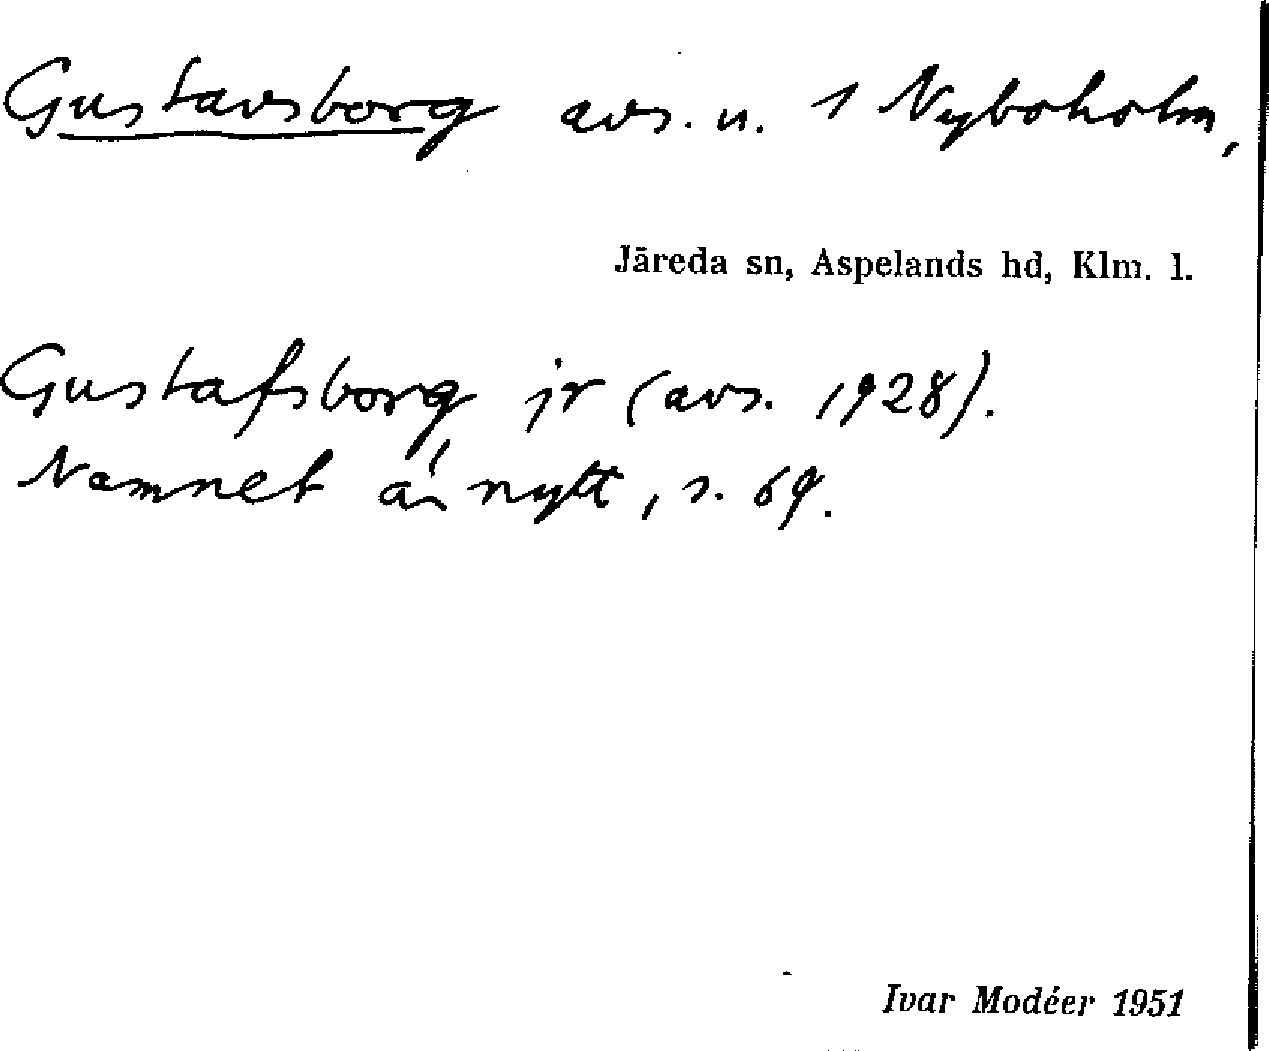 Gustavsborg avs. u. 1 Nyboholm,
Järeda sn, Aspelands hd, Klm. l.
Gustafsborg jr (avs. 1928).
Namnet är nytt, s. 69.
Ivar Modéer 1951